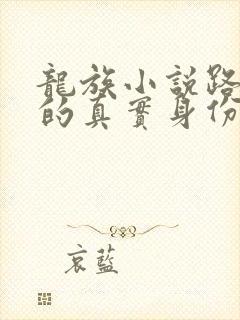 龍族小説路
的真實身份
哀藍